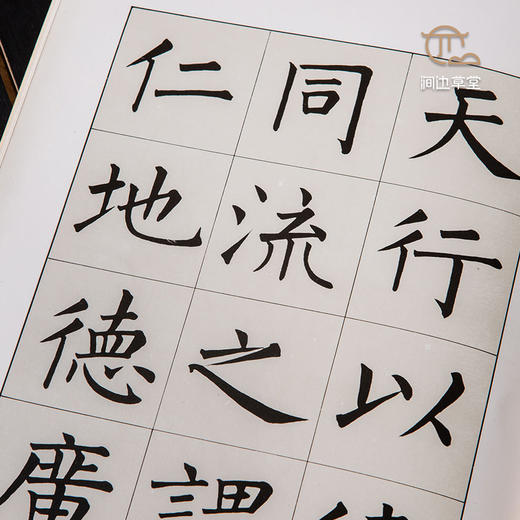 天行以
同流之謂
仁地德廣
涧边草堂